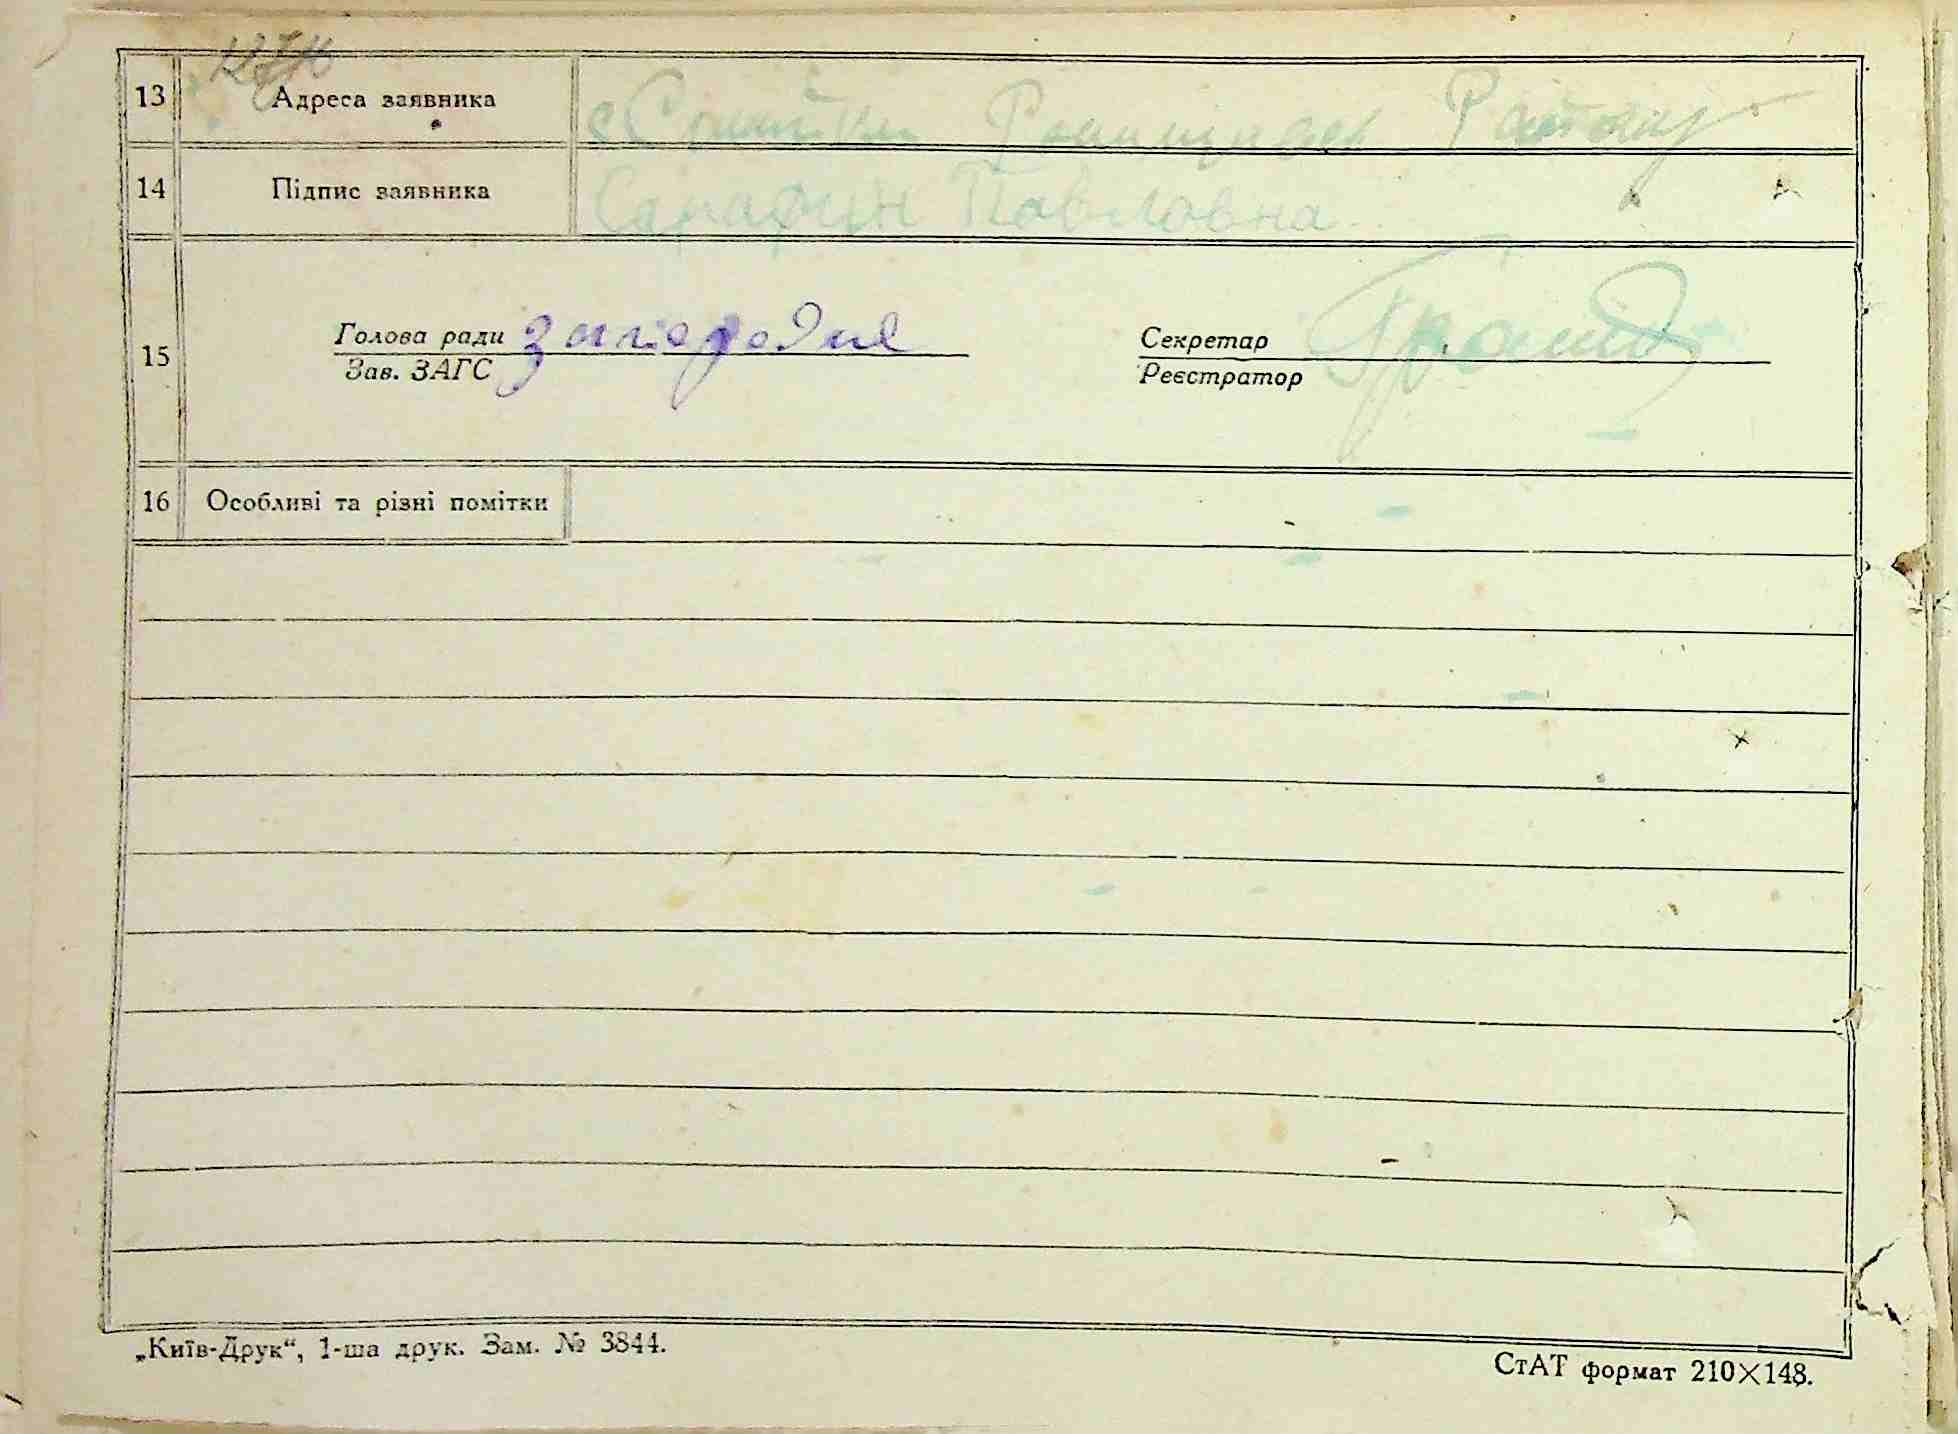 13 Адреса заявника Району
14 Підпис заявника Сарафин Павловна
15 Голова ради
Секретар
Зав. ЗАГС
Реєстратор
16 Особливі та різні помітки
„Київ-Друк“, 1-ша друк. Зам. № 3844.
СтАТ формат 210×148.